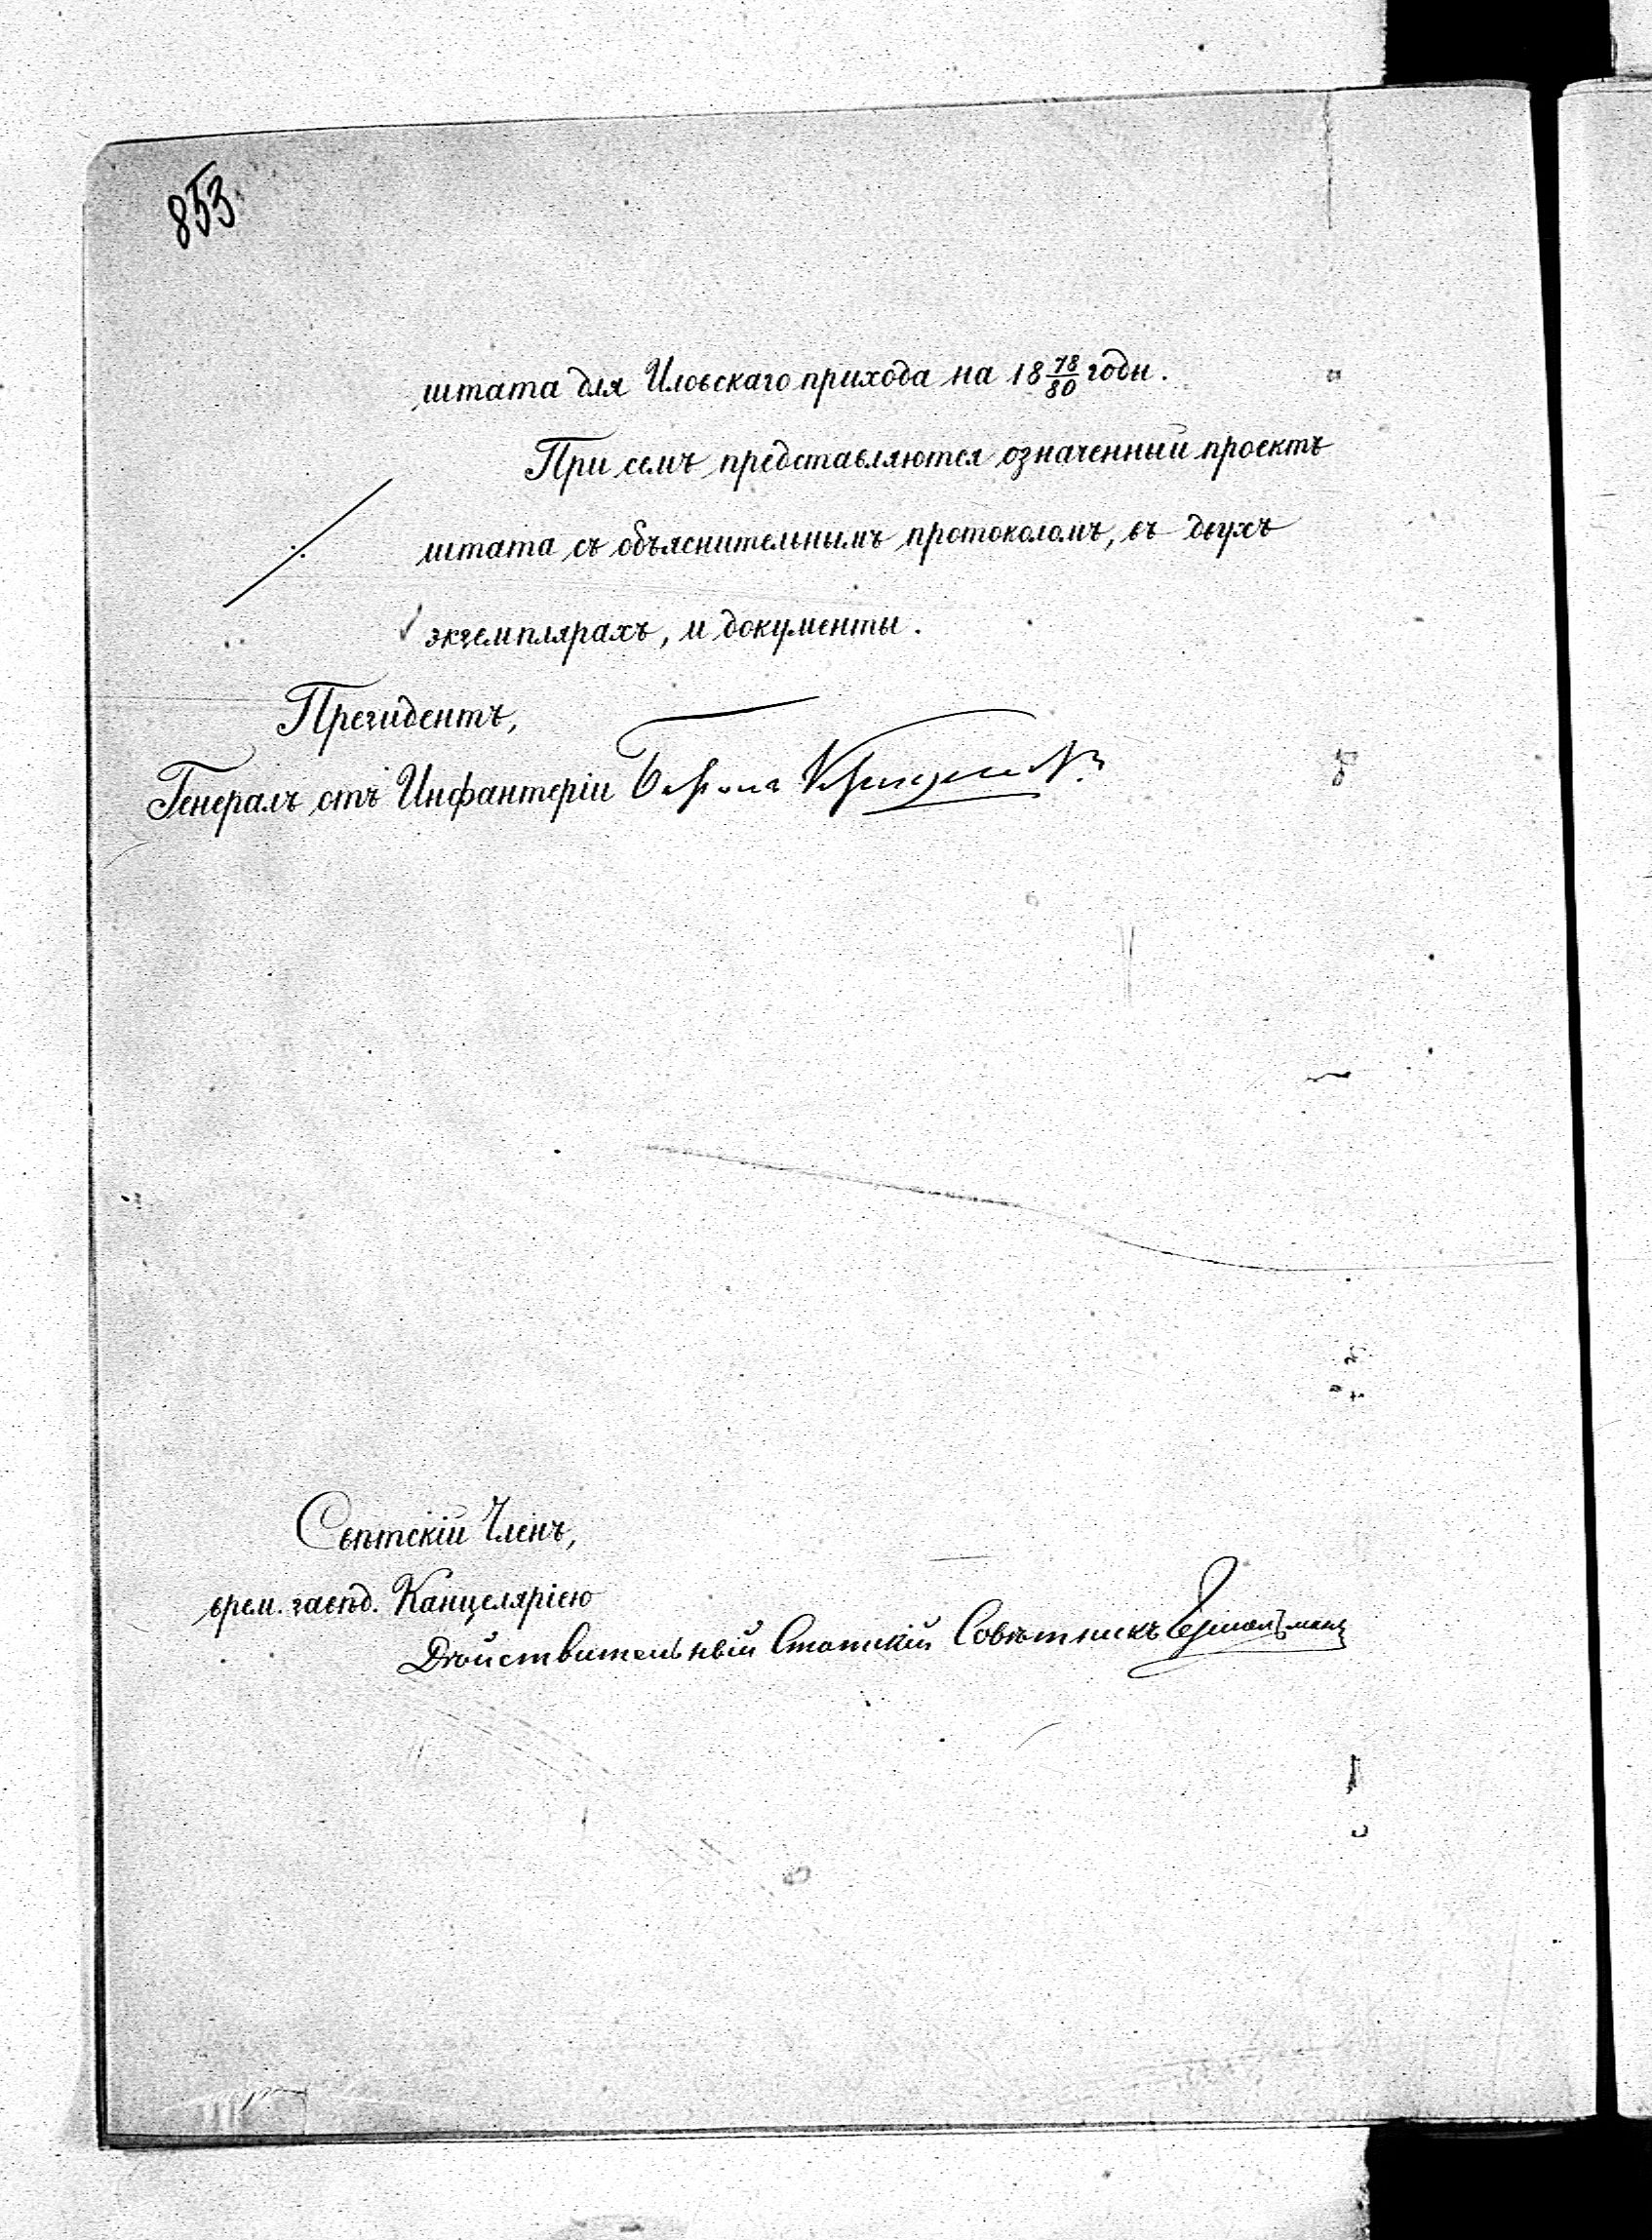 853
штата для Иловскаго прихода на 18 78/80 годы.
При семъ представляются означенный проектъ
штата съ объяснительнымъ протоколомъ, въ двухъ
экземплярахъ, и документы.
Президентъ,
Генералъ отъ Инфантеріи Баронъ
Свѣтскій Членъ,
врем. завѣд. Канцеляріею
Дѣйствительный Статскій Совѣтникъ